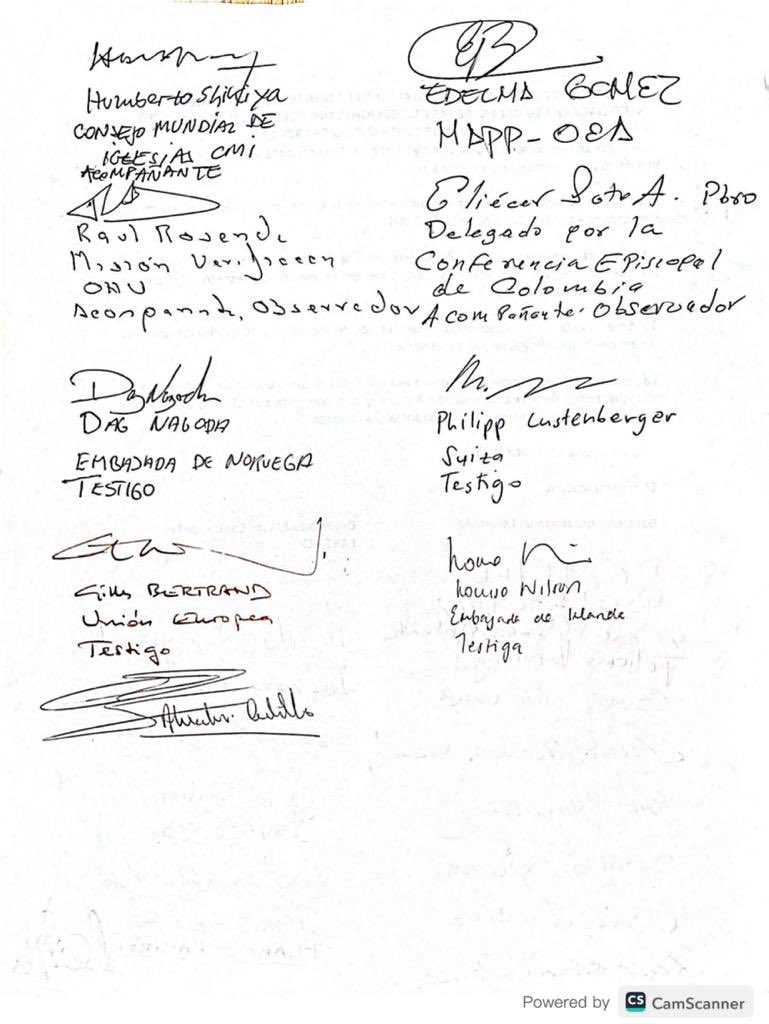 Humberto Shikiya
CONSEJO MUNDIAL DE
IGLESIAS CMI
ACOMPAÑANTE
EDELMA GOMEZ
MAPP-OEA
Raul Rosende
Misión Verificacion
ONU
Acompanante, Observador
Eliécer Soto A. Pbro
Delegado por la
Conferencia Episcopal
de Colombia
Acompañante. Observador
DAG NAGODA
EMBAJADA DE NORUEGA
TESTIGO
Philipp Lustenberger
Suiza
Testigo
Gilles BERTRAND
Unión Europea
Testigo
Wilson
Embajada de Irlanda
Testiga
Powered by CS CamScanner